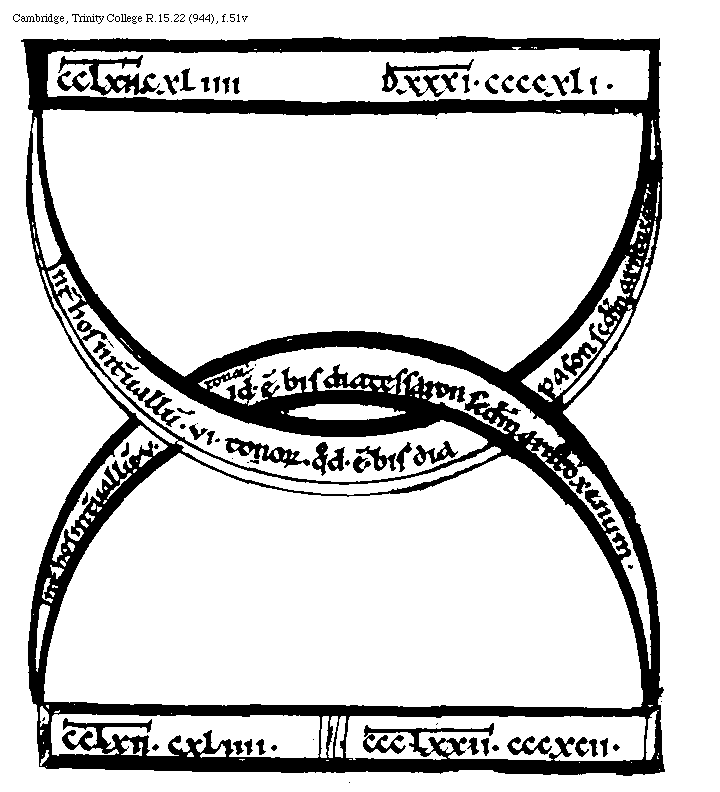 Cambridge, Trinity College R.15.22 (944), f.51v
cclxii.cxliiii
dxxxi.ccccxli.
int̄ hos int̄uallū. vi. tonoꝝ. qđ. ē. bis dia
pason scđm
int̄ hos int̄uallū. v.
tonoꝝ
id. ē. bis diatessaron scđm aristoxenum.
cclxii. cxliiii.
ccclxxii. cccxcii.